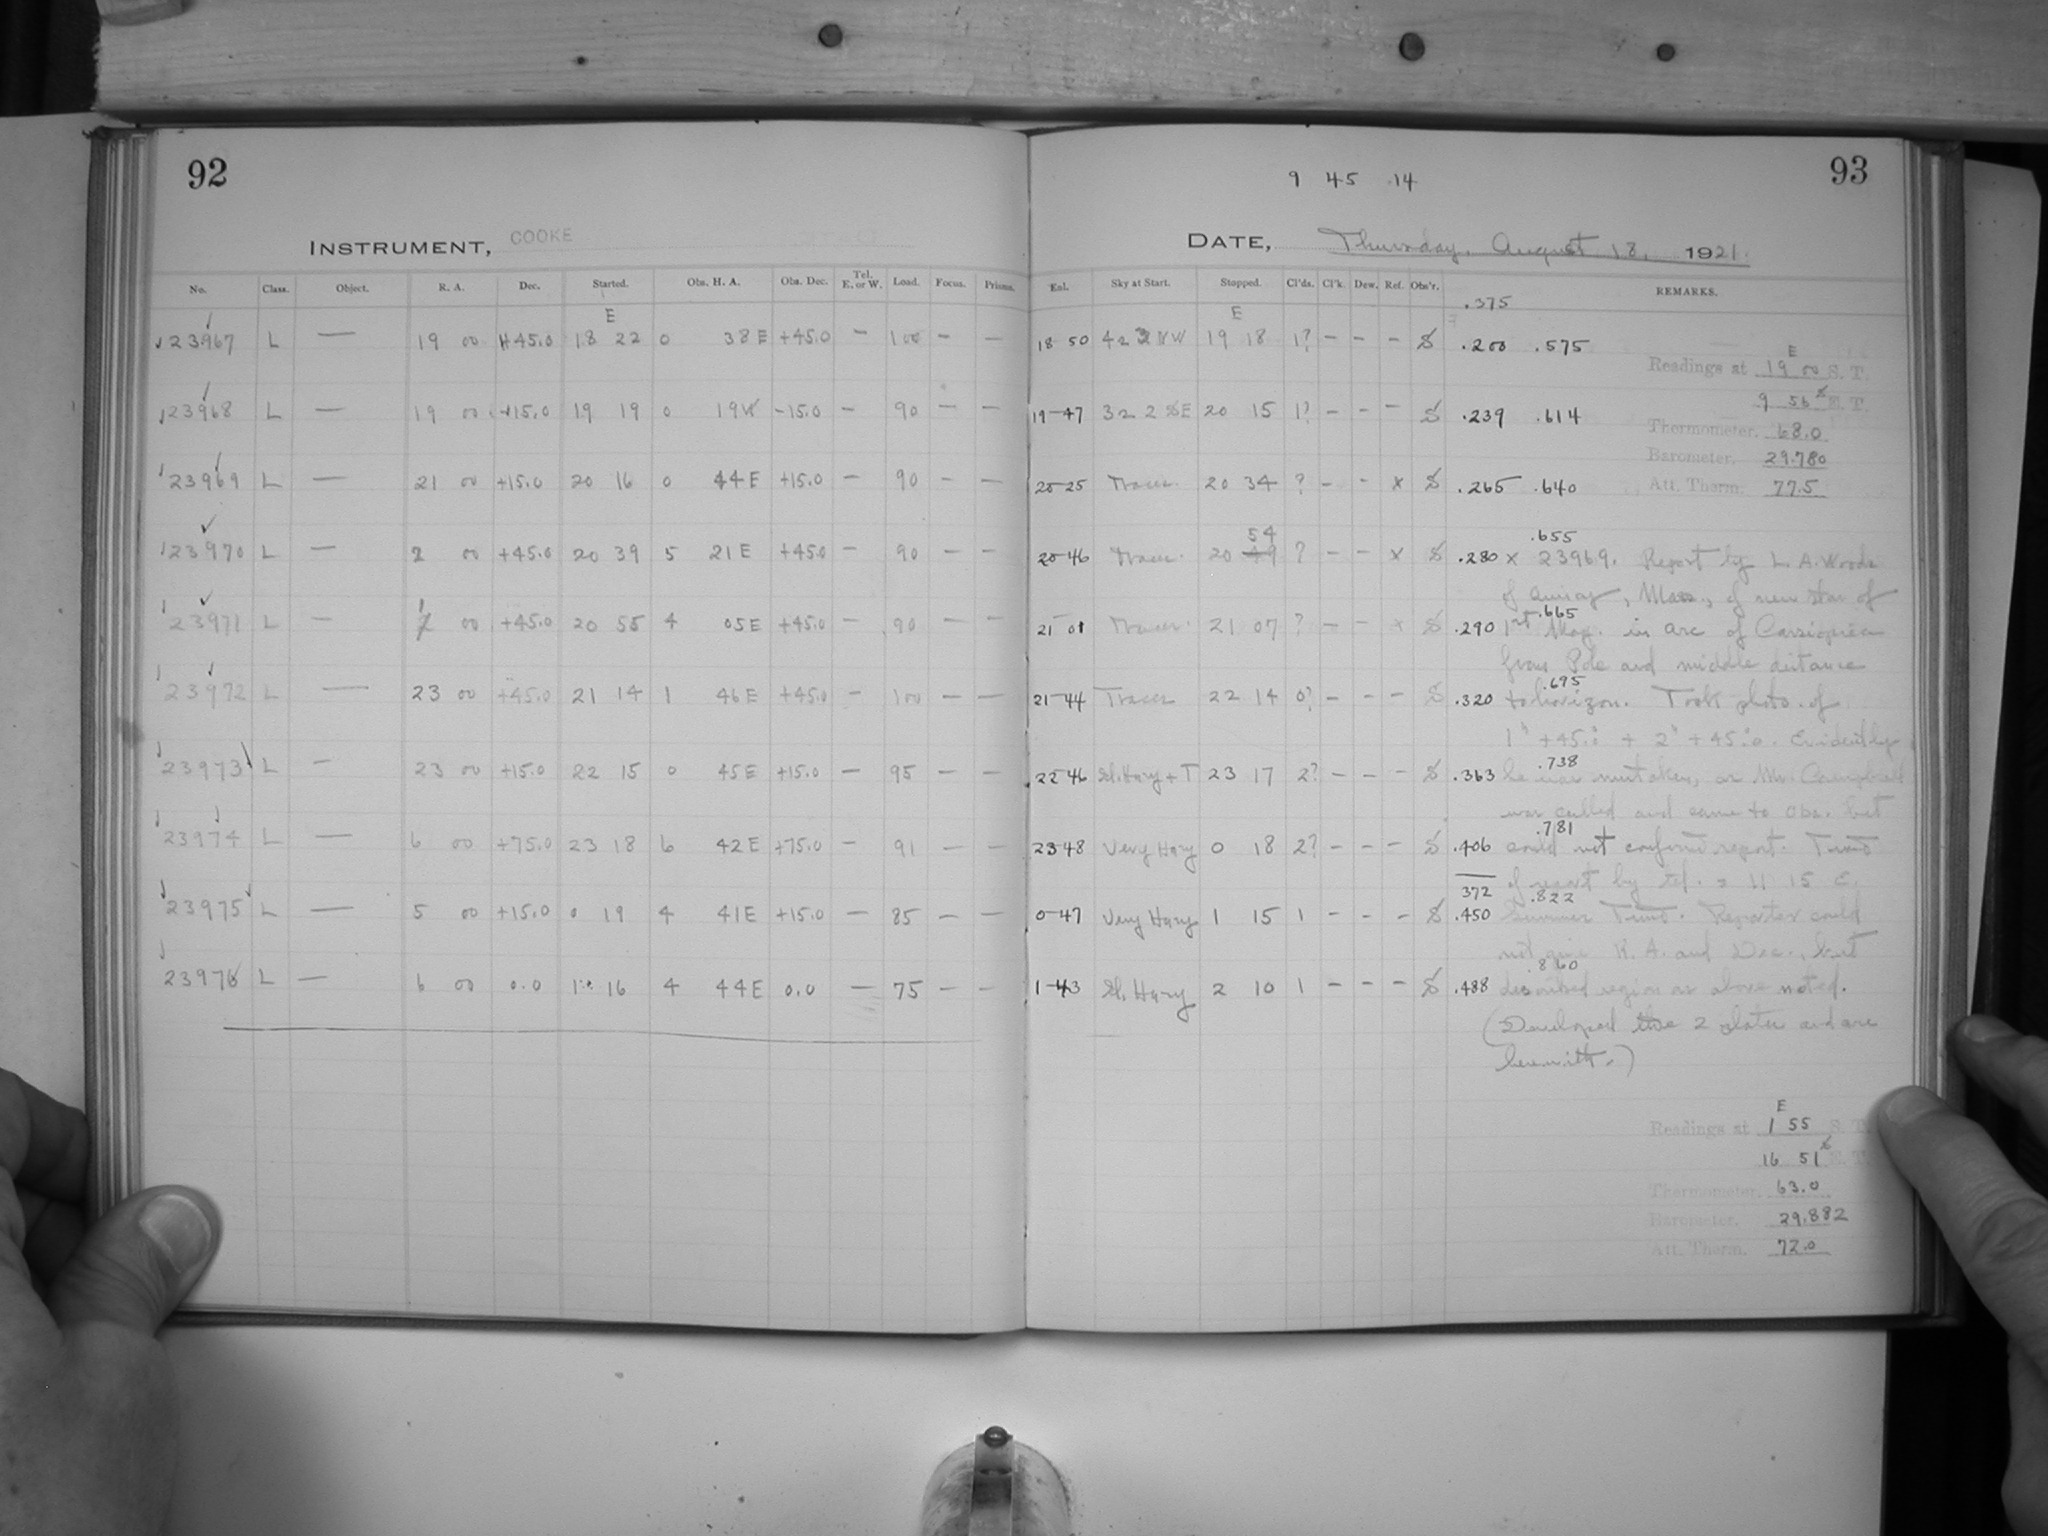 92
INSTRUMENT, COOKE
No. Class. Object. R. A. Dec. Started. Obs. H. A. Obs. Dec. Tel. E. or W. Load. Focus. Prisms.
E
23967 L — 19 00 +45.0 18 22 0 38 E +45.0 — 100 — —
23968 L — 19 00 -15.0 19 19 0 19 W -15.0 — 90 — —
23969 L — 21 00 +15.0 20 16 0 44 E +15.0 — 90 — —
23970 L — 2 00 +45.0 20 39 5 21 E +45.0 — 90 — —
23971 L — 1 00 +45.0 20 55 4 05 E +45.0 — 90 — —
23972 L — 23 00 +45.0 21 14 1 46 E +45.0 — 100 — —
23973 L — 23 00 +15.0 22 15 0 45 E +15.0 — 95 — —
23974 L — 6 00 +75.0 23 18 6 42 E +75.0 — 91 — —
23975 L — 5 00 +15.0 0 19 4 41 E +15.0 — 85 — —
23976 L — 6 00 0.0 1 16 4 44 E 0.0 — 75 — —
93
9 45 14
DATE, Thursday, August 18, 1921.
Eal. Sky at Start. Stopped. Cl'ds. Cl'k. Dew. Ref. Obs'r. REMARKS.
.375
E
18 50 19 18 1? — — — S .200 .575
19-47 20 15 1? — — — S .239 .614
20-25 Traces 20 34 ? — — x S .265 .640
54
20-46 Traces 20 49 ? — — x S .280 .655
21 01 Traces 21 07 ? — — x S .290 .665
21-44 Traces 22 14 0? — — — S .320 .695
22-46 Sl. Hazy + T 23 17 2? — — — S .363 .738
23-48 Very Hazy 0 18 2? — — — S .406 .781
372
0-47 Very Hazy 1 15 1 — — — S .450 .822
1-43 Sl. Hazy 2 10 1 — — — S .488 .860
E
Readings at 19 00 S. T.
9 56 E. T.
Thermometer, 68.0
Barometer, 29.780
Att. Therm. 77.5
x 23969. Report by L. A. Woods
of Quincy, Mass., of new star of
1st Mag. in arc of Cassiopeia
from Pole and middle distance
to horizon. Took photo. of
1h +45.° + 2h +45.°0. Evidently
he was mistaken, as Mr. Campbell
was called and came to Obs. but
could not confirm report. Time
of report by tel. = 11 15 E.
Summer Time. Reporter could
not give R. A. and Dec., but
described region as above noted.
(Developed the 2 plates and are
herewith.)
E
Readings at 1 55 S. T.
16 51 E. T.
Thermometer, 63.0
Barometer, 29.882
Att. Therm. 72.0